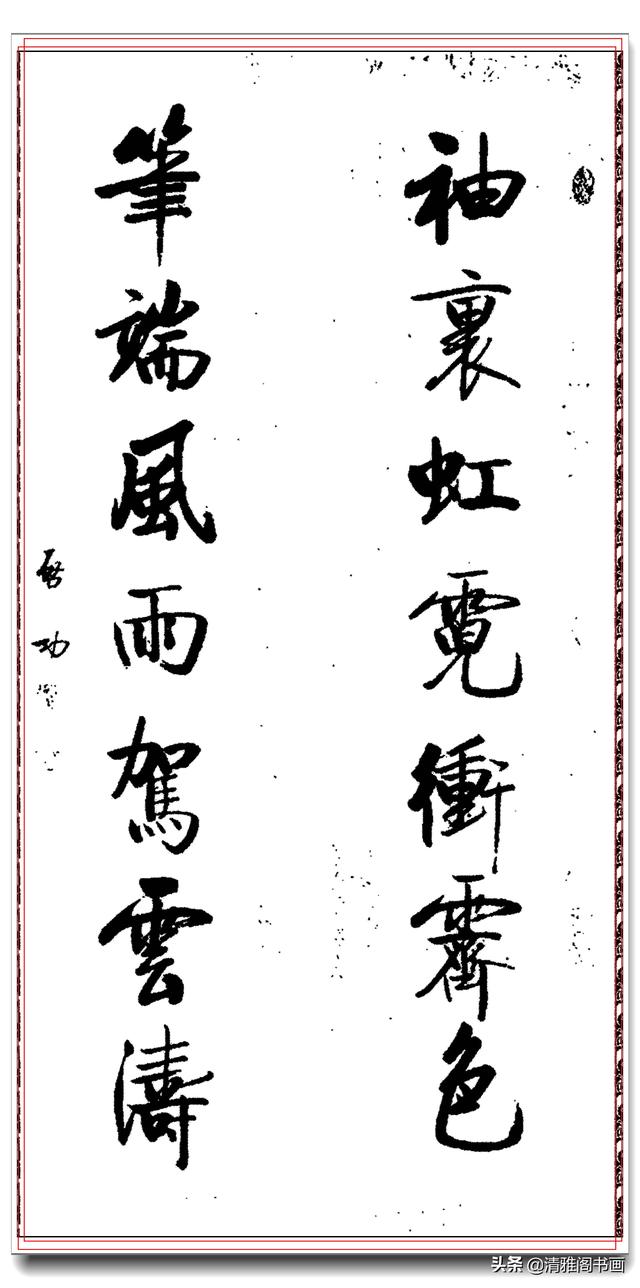 袖裏虹霓衝霽色
筆端風雨駕雲濤
啓功
头条 @清雅阁书画